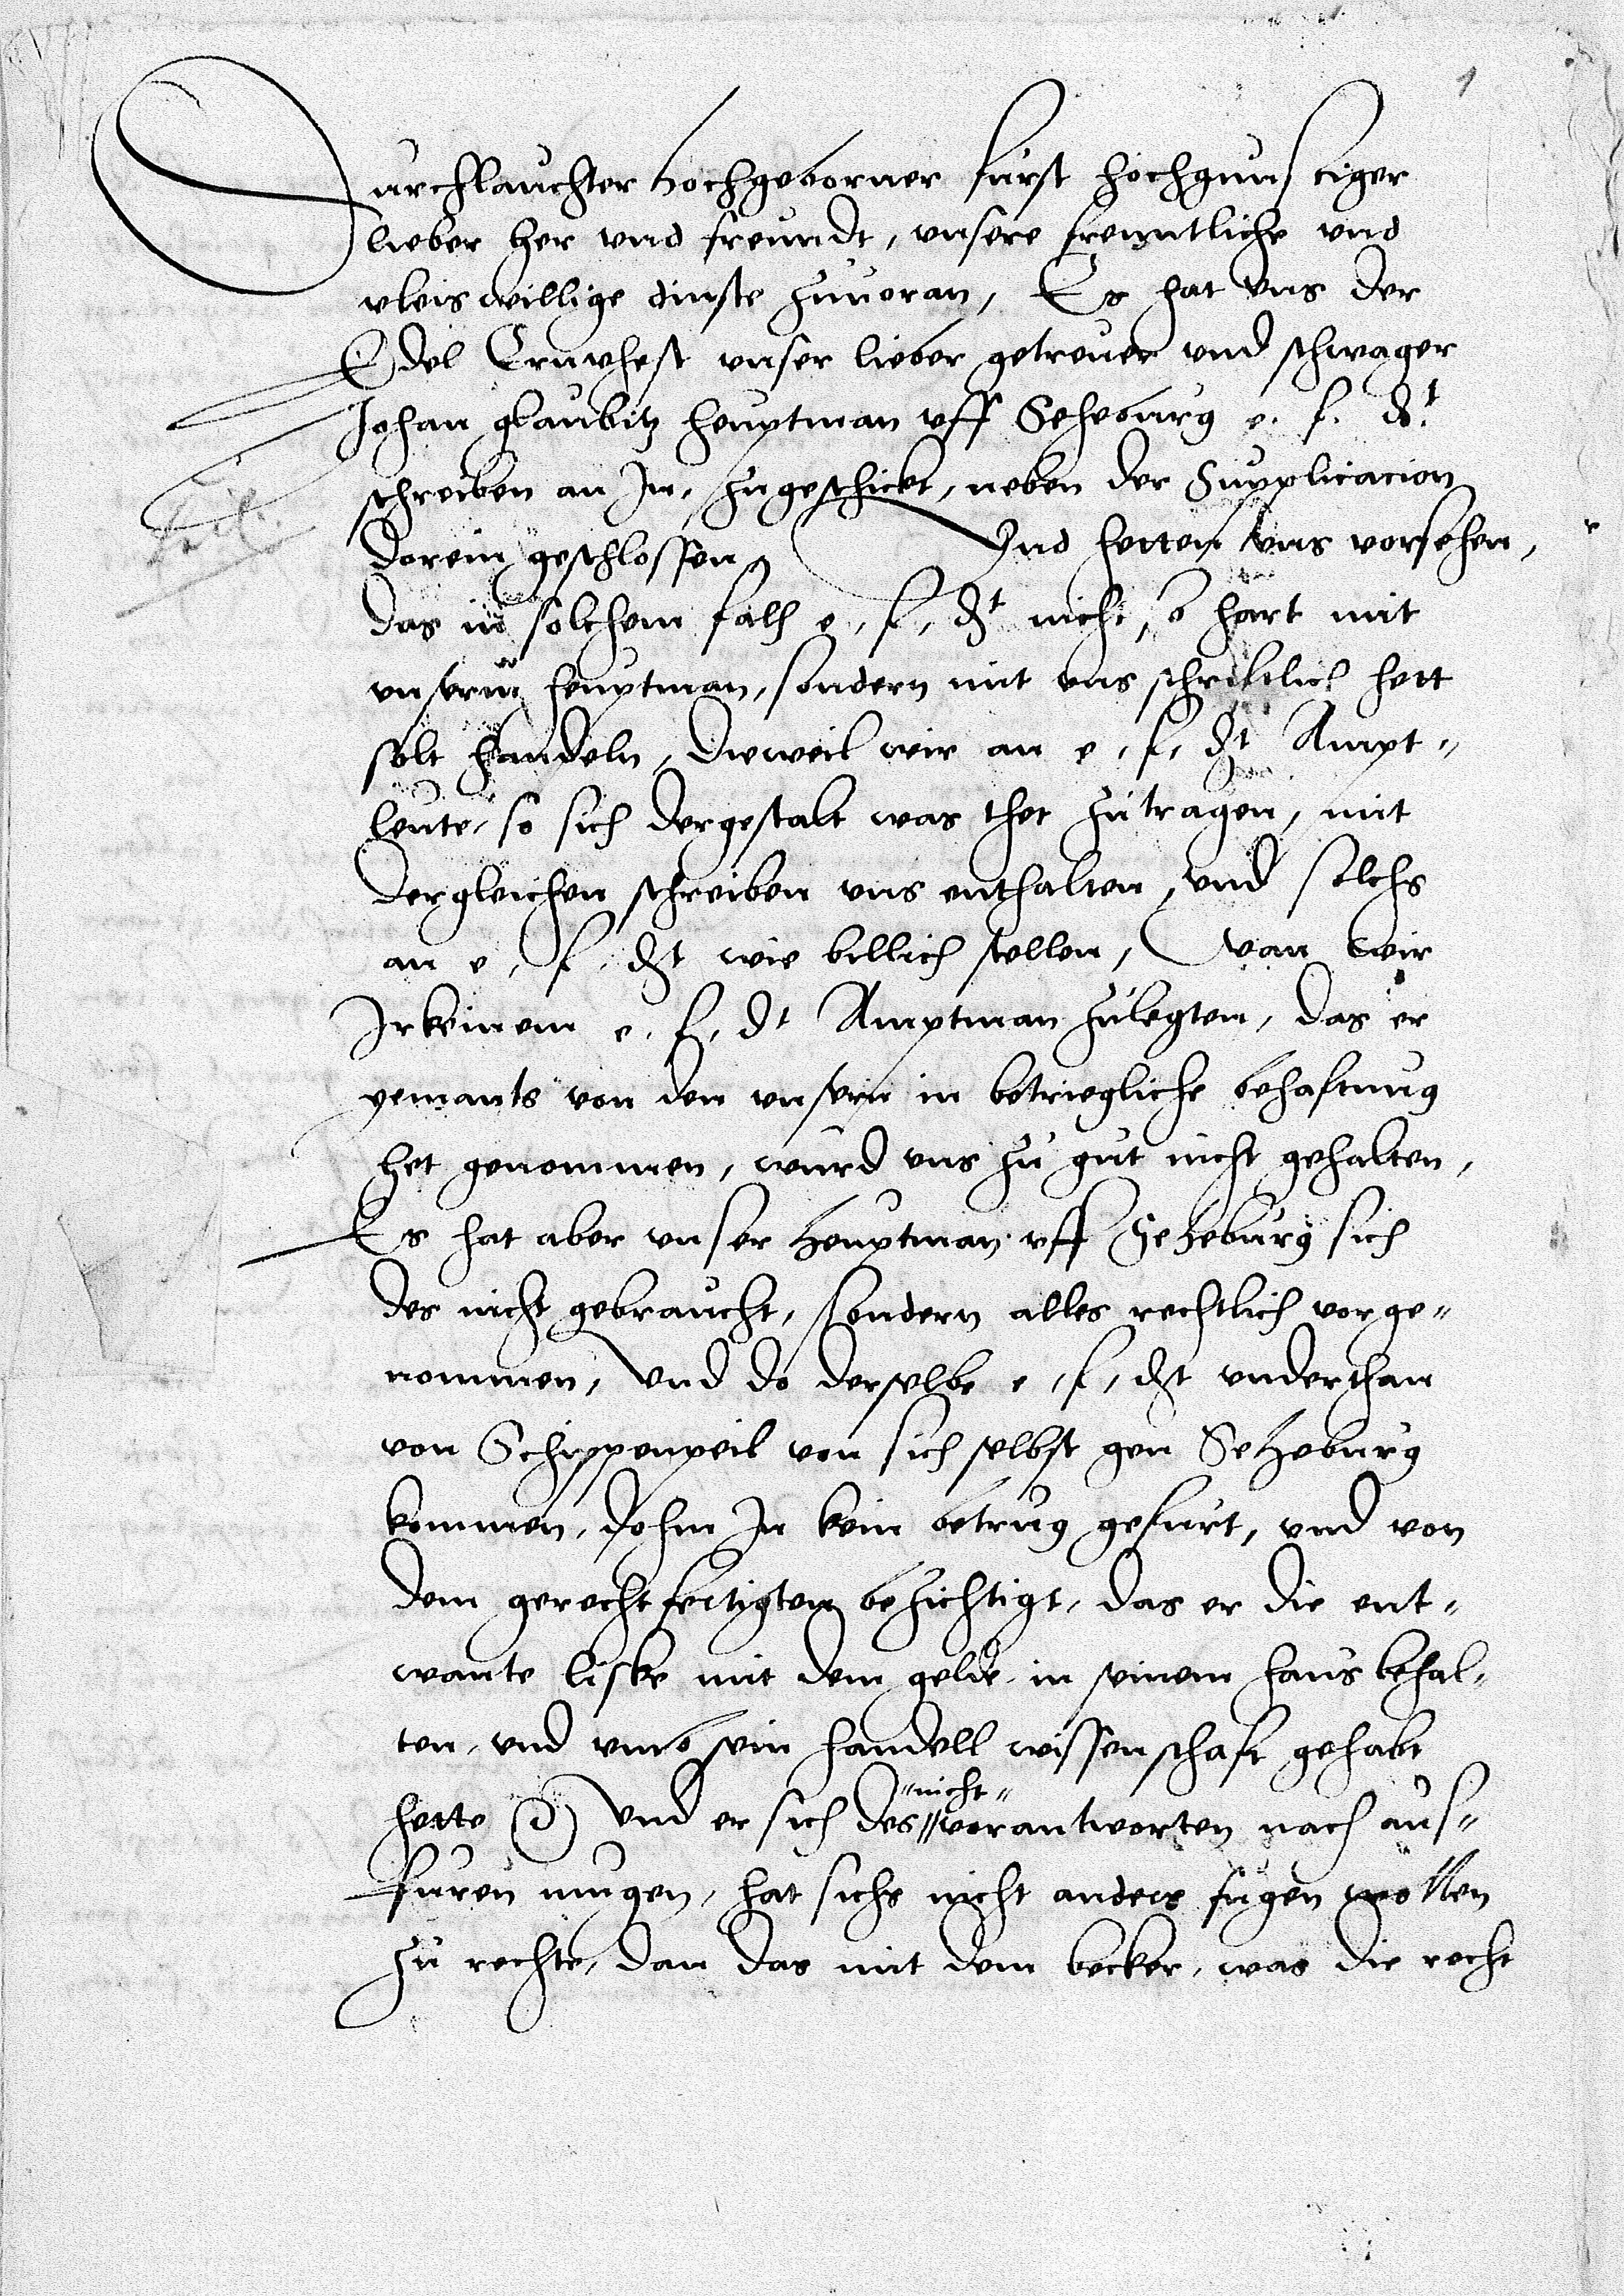 1
Durchlauchter hochgeborner furst hochgunstiger
lieber her vnd freundt, vnsere freuntliche vnd
vleis willige dinste zuuoran, Es hat vns der
Edel Ernvhest vnser lieber getreuer vnd schwager
Johan glaubitz heuptman vff Seheburg e. f. dt
schreiben an In, zugeschickt, neben der Supplicacion
dorein geschlossen, Vnd hetten vns vorsehen,
das in solchem fall e, f, dt nicht so hart mit
vnserm heuptman, sondern mit vns schriftlich hett
solt handeln, dieweil wir an e, f, dt Ampt-
leute, so sich dergestalt was thet zutragen, mit
dergleichen schreiben vns enthalten, vnd solchs
an e, f, dt wie billich stellen, wan wir
Irkeinem e. f, dt Amptman zulegten, das er
yemants von den vnsern in betriegliche behaftnug
het genommen, wurd vns zu gut nicht gehalten,
Es hat aber vnser heuptman vff Seheburg sich
des nicht gebraucht, sondern alles rechtlich vorge-
nommen, Vnd do derselbe e, f, dt vnderthan
von Schippenpeil von sich selbst gen Seheburg
kommen, dohin In kein betrug gefurt, vnd von
dem gerechtfertigten bezichtigt, das er die ent-
wante liske mit dem gelde in seinem haus behal-
ten, vnd vmb sein handell wissenschaft gehabt
hette Vnd er sich des nicht vorantworten nach aus-
furen mugen, hat sichs nicht anders fugen wollen
zu rechte, dan das mit dem becker, was die recht